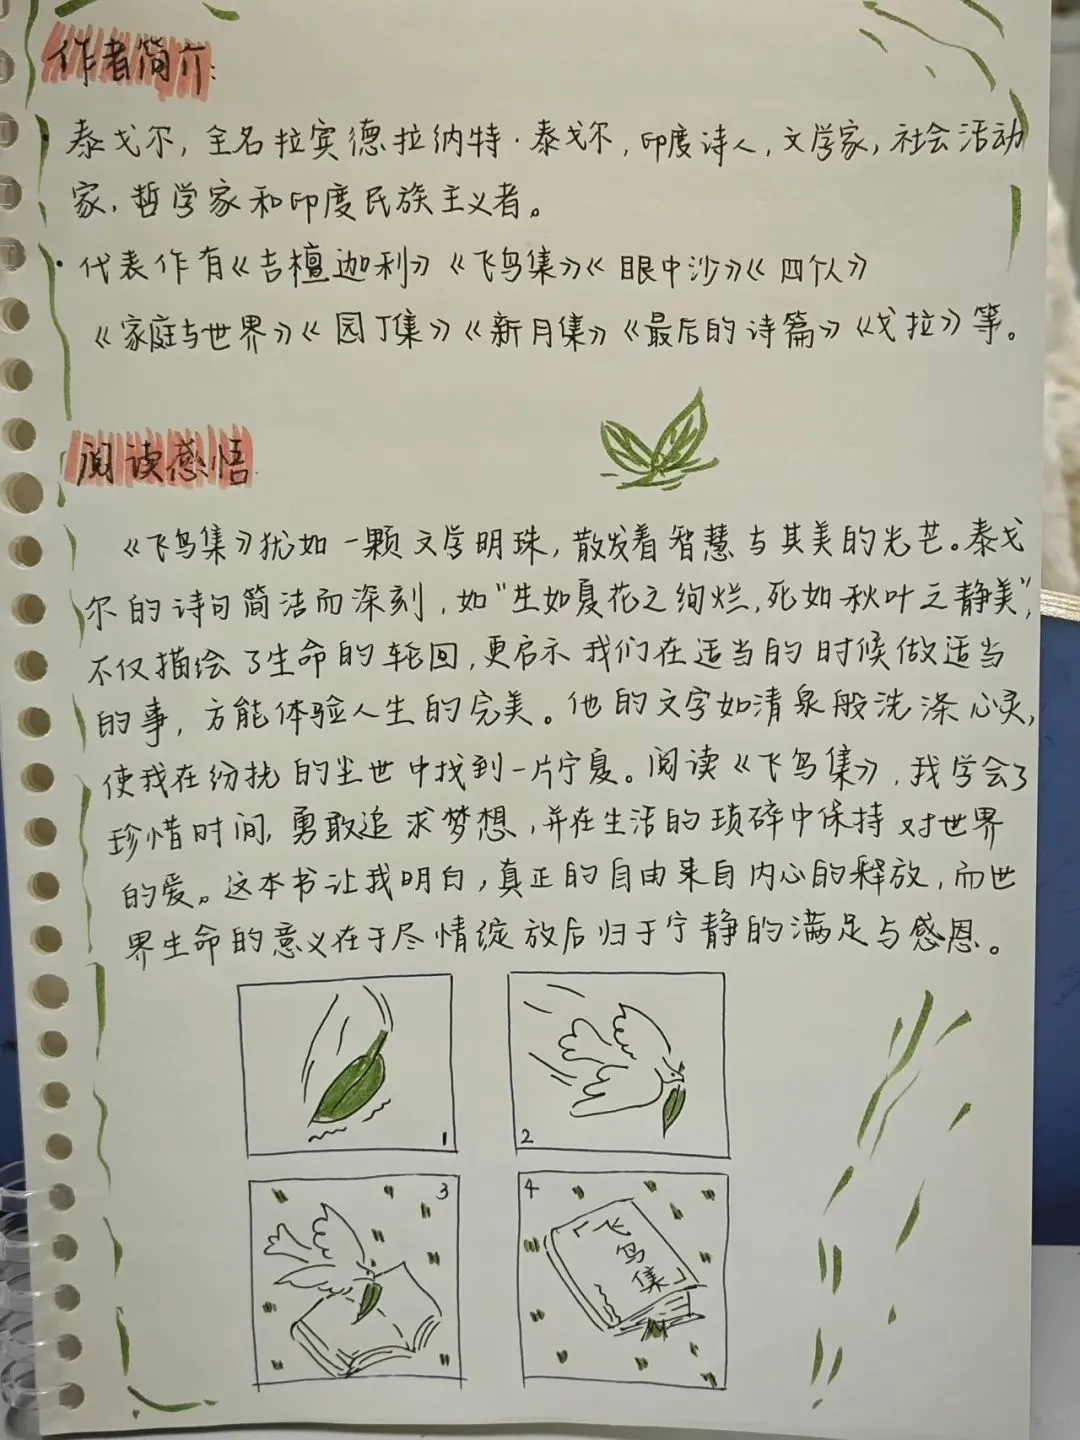 作者简介:
· 泰戈尔,全名拉宾德拉纳特·泰戈尔,印度诗人,文学家,社会活动
家,哲学家和印度民族主义者。
· 代表作有《吉檀迦利》《飞鸟集》《眼中沙》《四个人》
《家庭与世界》《园丁集》《新月集》《最后的诗篇》《戈拉》等。
阅读感悟
《飞鸟集》犹如一颗文学明珠,散发着智慧与其美的光芒。泰戈
尔的诗句简洁而深刻,如"生如夏花之绚烂,死如秋叶之静美",
不仅描绘了生命的轮回,更启示我们在适当的时候做适当
的事,方能体验人生的完美。他的文字如清泉般洗涤心灵,
使我在纷扰的尘世中找到一片宁夏。阅读《飞鸟集》,我学会了
珍惜时间,勇敢追求梦想,并在生活的琐碎中保持对世界
的爱。这本书让我明白,真正的自由来自内心的释放,而世
界生命的意义在于尽情绽放后归于宁静的满足与感恩。
1
2
3
4
「飞
鸟
集」